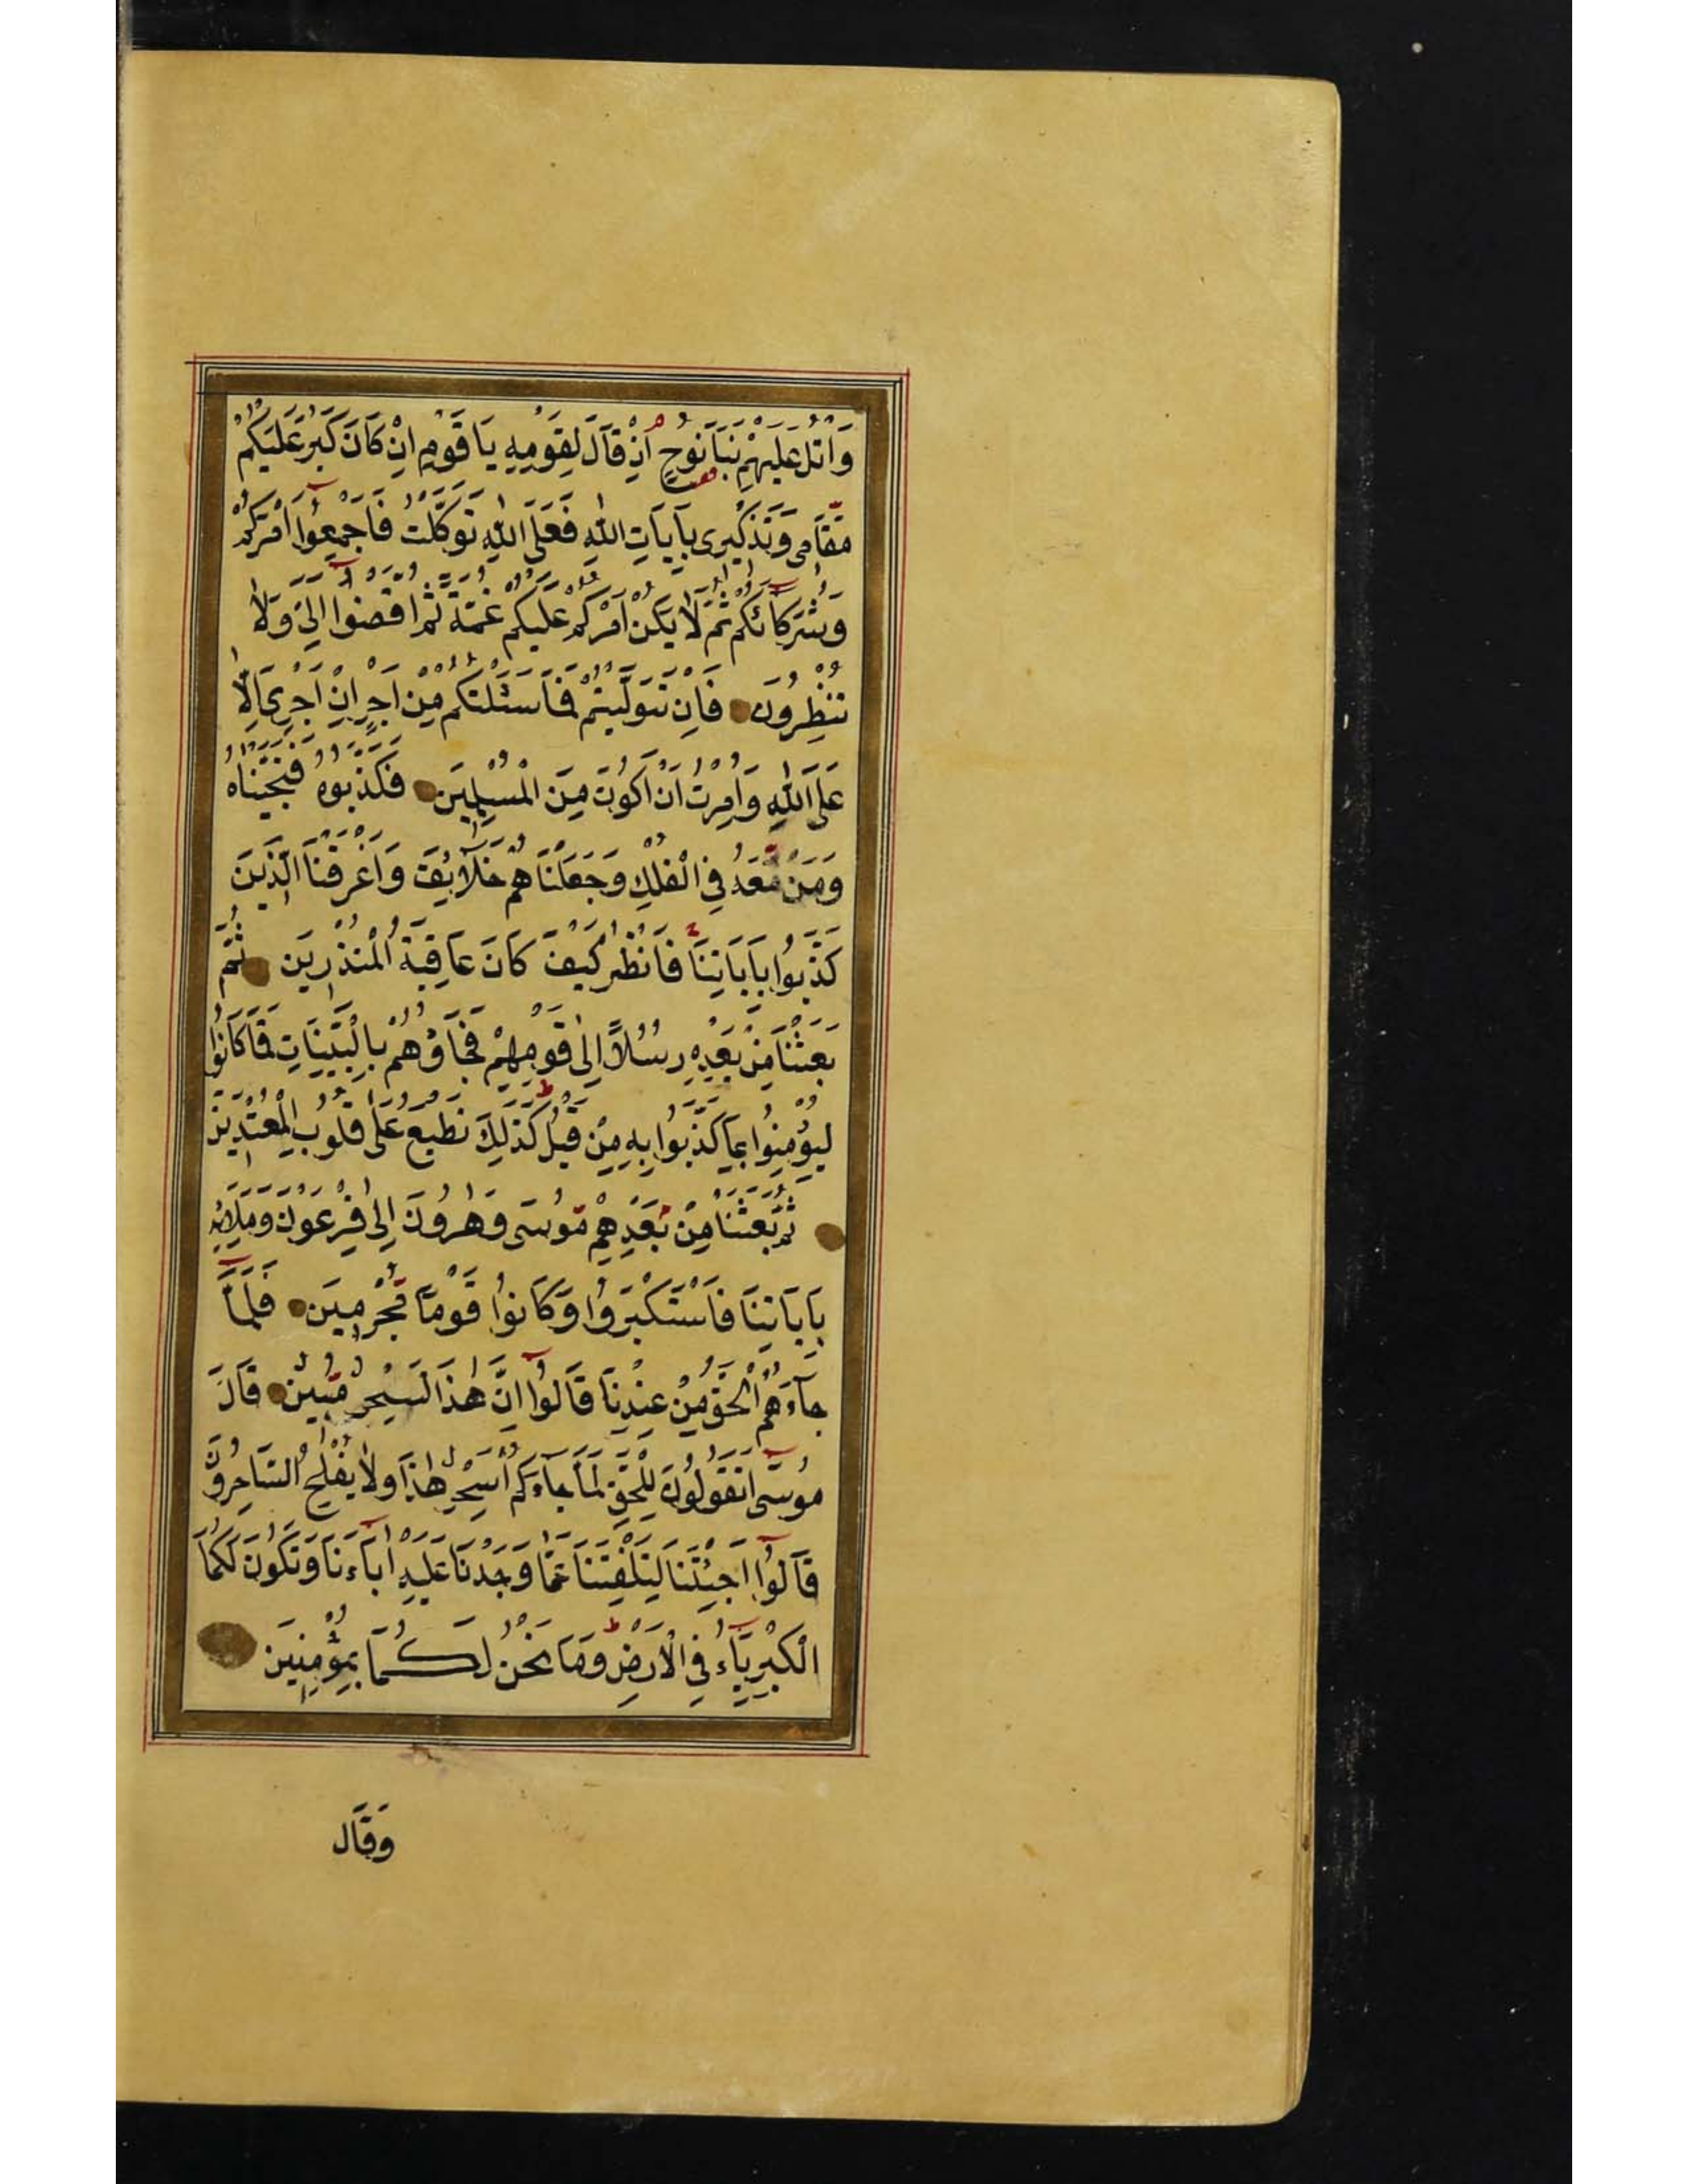 وَاتْلُ عَلَيْهِمْ نَبَاَ نُوحٍ اِذْ قَالَ لِقَوْمِهِ يَا قَوْمِ اِنْ كَانَ كَبُرَ عَلَيْكُمْ
مَّقَامِى وَتَذْكِيرِى بِاٰيَاتِ اللّٰهِ فَعَلَى اللّٰهِ تَوَكَّلْتُ فَاَجْمِعُوٓا اَمْرَكُمْ
وَشُرَكَآئَكُمْ ثُمَّ لَا يَكُنْ اَمْرُكُمْ عَلَيْكُمْ غُمَّةً ثُمَّ اقْضُوٓا اِلَىَّ وَلَا
تُنْظِرُونَ فَاِنْ تَوَلَّيْتُمْ فَمَا سَئَلْتُكُمْ مِّنْ اَجْرٍ اِنْ اَجْرِىَ اِلَّا
عَلَى اللّٰهِ وَاُمِرْتُ اَنْ اَكُونَ مِنَ الْمُسْلِمِينَ فَكَذَّبُوهُ فَنَجَّيْنَاهُ
وَمَنْ مَّعَهُ فِى الْفُلْكِ وَجَعَلْنَاهُمْ خَلَآئِفَ وَاَغْرَقْنَا الَّذِينَ
كَذَّبُوا بِاٰيَاتِنَا فَانْظُرْ كَيْفَ كَانَ عَاقِبَةُ الْمُنْذَرِينَ ثُمَّ
بَعَثْنَا مِنْ بَعْدِهِ رُسُلًا اِلٰى قَوْمِهِمْ فَجَآؤُهُمْ بِالْبَيِّنَاتِ فَمَا كَانُوا
لِيُؤْمِنُوا بِمَا كَذَّبُوا بِهِ مِنْ قَبْلُ كَذٰلِكَ نَطْبَعُ عَلٰى قُلُوبِ الْمُعْتَدِينَ
ثُمَّ بَعَثْنَا مِنْ بَعْدِهِمْ مُّوسٰى وَهٰرُونَ اِلٰى فِرْعَوْنَ وَمَلَائِهِ
بِاٰيَاتِنَا فَاسْتَكْبَرُوا وَكَانُوا قَوْمًا مُّجْرِمِينَ فَلَمَّا
جَآءَهُمُ الْحَقُّ مِنْ عِنْدِنَا قَالُوٓا اِنَّ هٰذَا لَسِحْرٌ مُّبِينٌ قَالَ
مُوسٰٓى اَتَقُولُونَ لِلْحَقِّ لَمَّا جَآءَكُمْ اَسِحْرٌ هٰذَا وَلَا يُفْلِحُ السَّاحِرُونَ
قَالُوٓا اَجِئْتَنَا لِتَلْفِتَنَا عَمَّا وَجَدْنَا عَلَيْهِ اٰبَآءَنَا وَتَكُونَ لَكُمَا
الْكِبْرِيَآءُ فِى الْاَرْضِ وَمَا نَحْنُ لَكُمَا بِمُؤْمِنِينَ
وَقَالَ